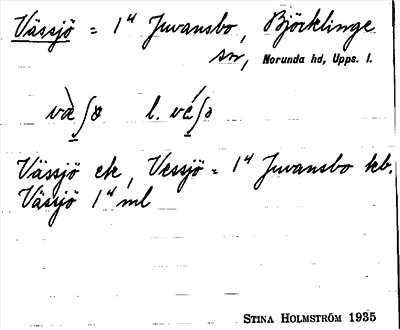 Vässjö = 1⁴ Juvansbo, Björklinge
sn, Norunda hd, Upps. l.
l.
Vässjö ek, Vessjö = 1⁴ Juvansbo kb.
Vässjö 1⁴ ml
STINA HOLMSTRÖM 1935